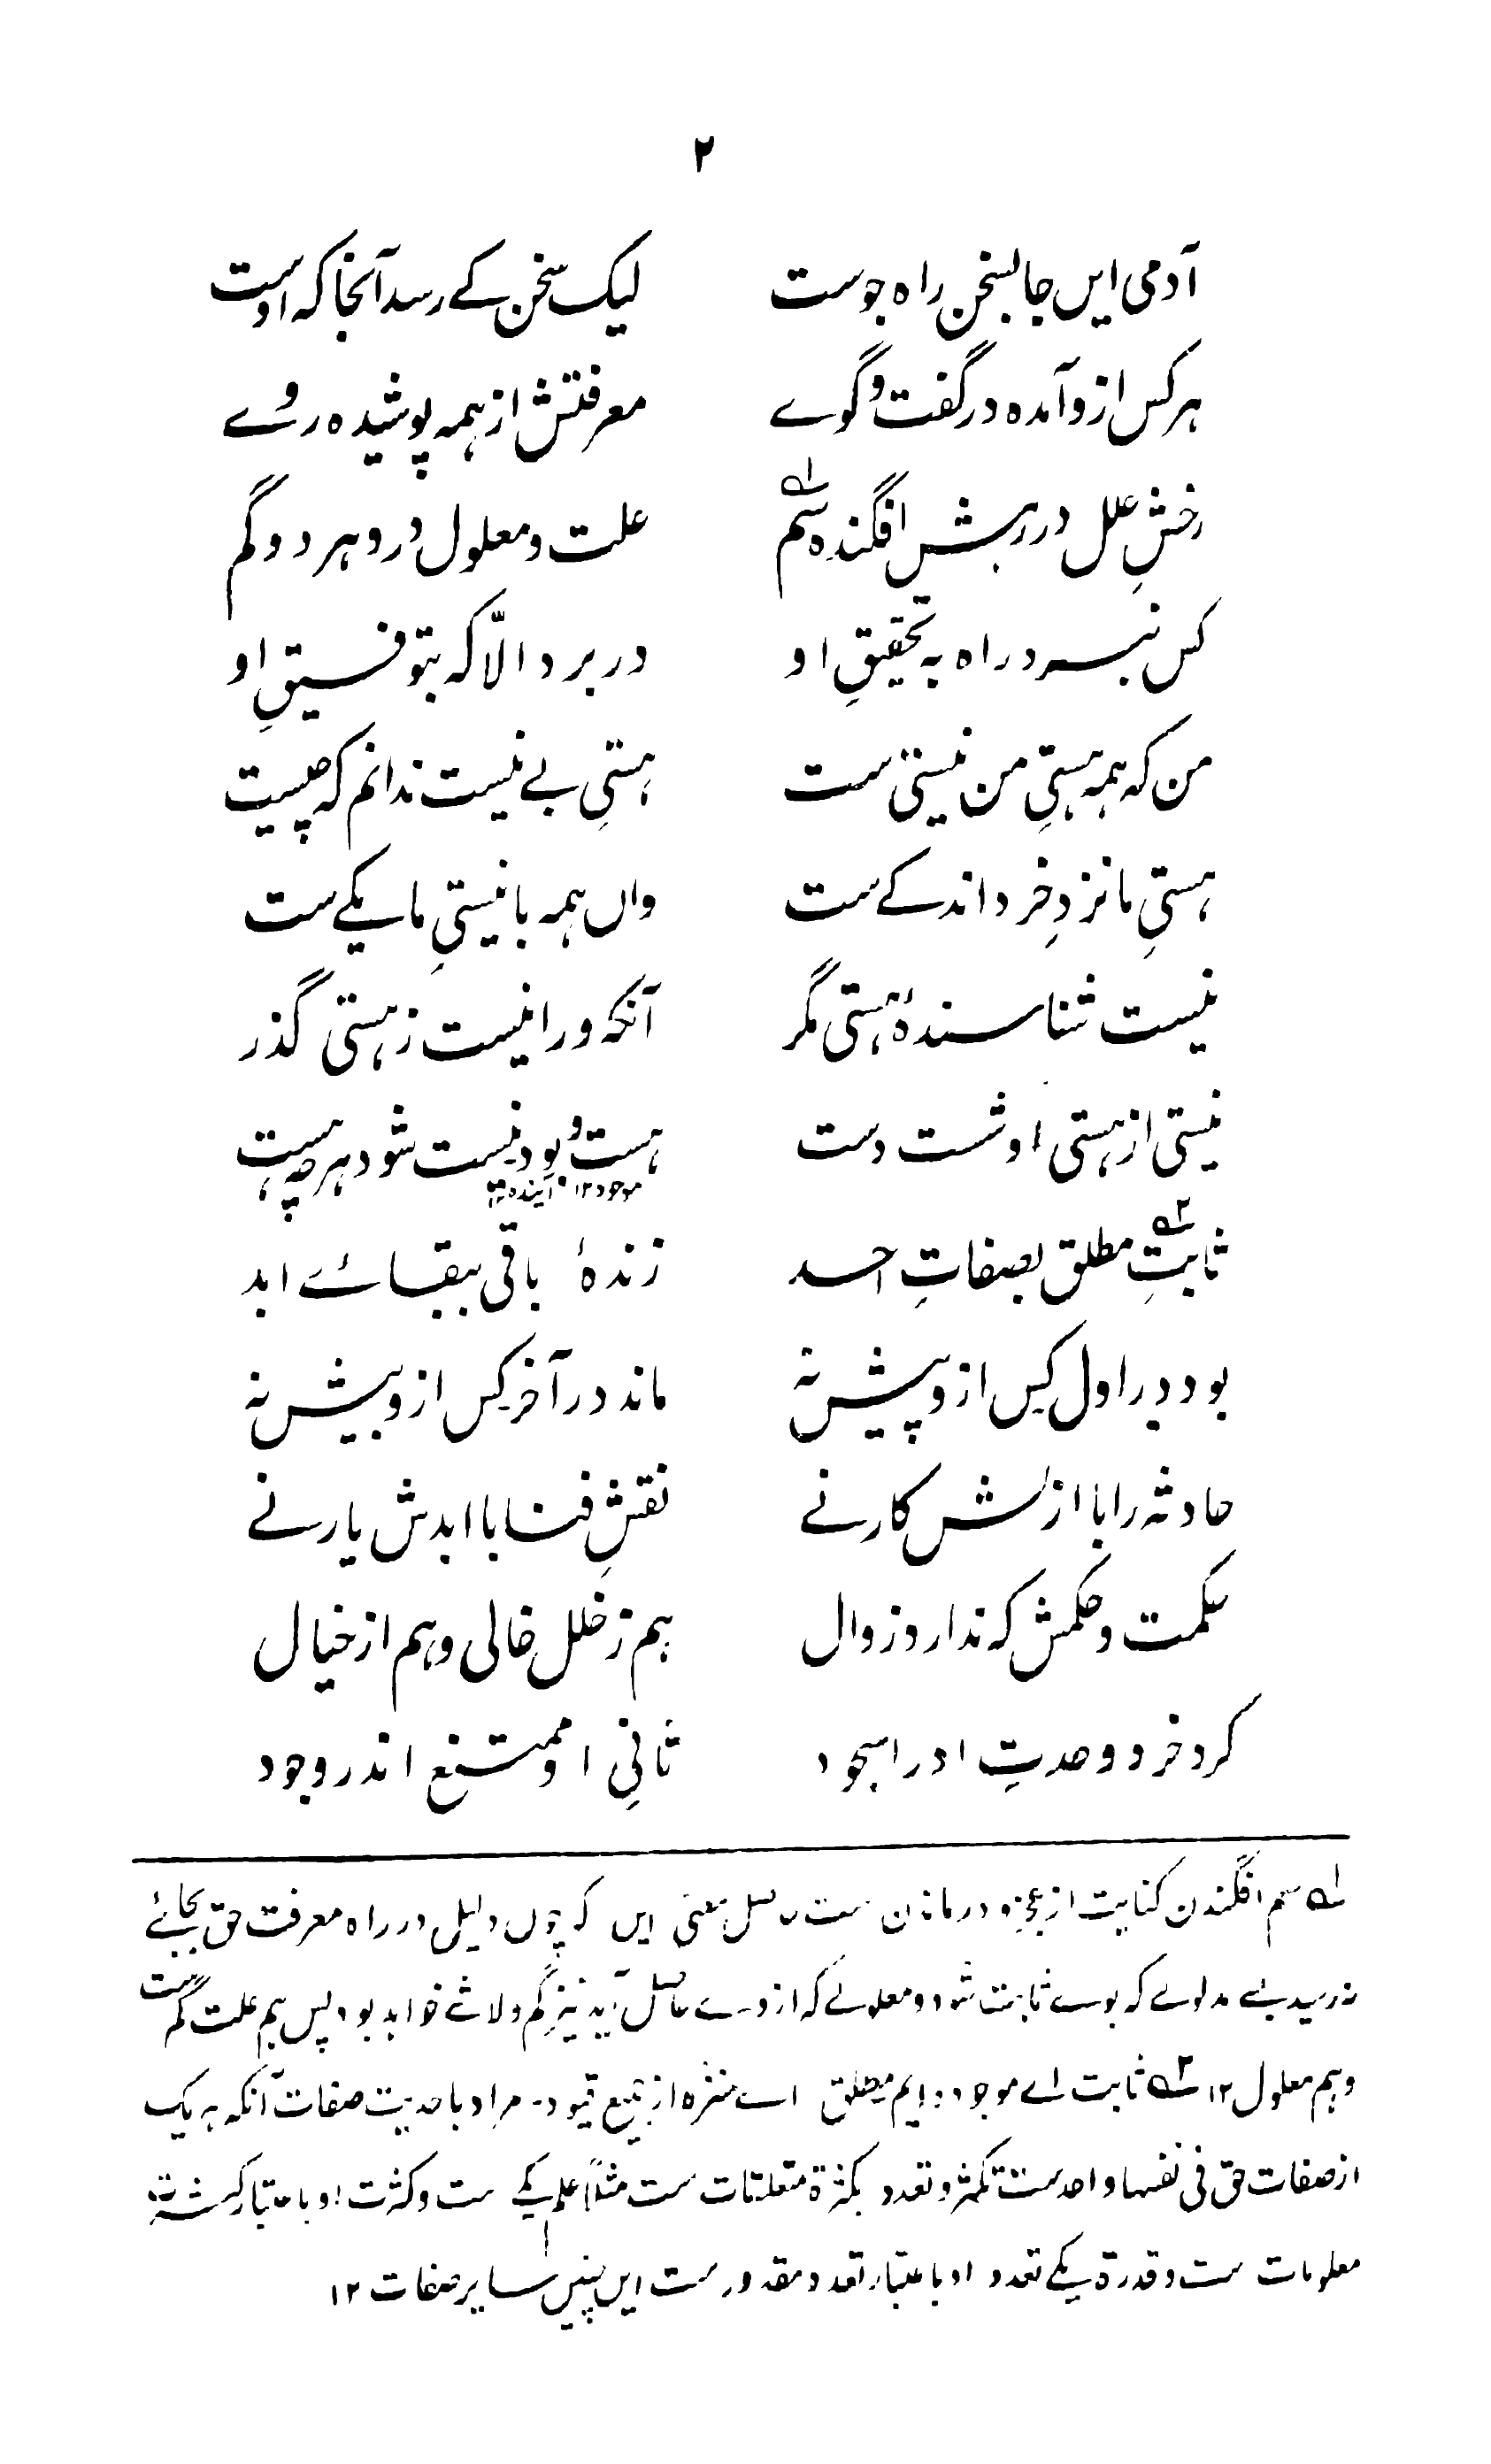 ۲
آدمی ایں جا بسخن راہ جوست لیک سخن کے رسد آنجا کہ اوست
ہر کس ازو آمدہ در گفت و گوے معرفتش از ہمہ پوشیدہ روے
رخشِ علل در رہش افگندہ سُم ۱؎ علت و معلول درو ہر دو گم
کس نبرد راہ بہ تحقیقِ او در برد الّا کہ بتوفیقِ او
من کہ ہمہ ہستیِ من نیستی ست ہستیِ بے نیست ندانم کہ چیست
ہستیِ ما نزدِ خرد اندکے ست واں ہمہ با نیستیِ ما یکے ست
نیست شناسندۂ ہستی مگر آنکہ ورا نیست ز ہستی گذر
نیستی از ہستی او شست دست ہست و بود نیست شود ہر چہ ہست
موجود ۱۲ آیندہ ۱۲
ثابتِ ۲؎ مطلق بصفاتِ احد زندۂ باقی ببقائے ابد
بود در اول کس ازو پیش نہ ماند در آخر کس ازو بیش نہ
حادثہ را با ازلش کار نے نقشِ فنا با ابدش یار نے
حکمت و حکمش کہ ندارد زوال ہم ز خلل خالی و ہم از خیال
کرد خرد وحدتِ او را سجود ثانیِ او ممتنع اندر وجود
۱؎ سم افگندن کنایت از عجز و درماندن ست حاصل معنی ایں کہ چوں دلیل در راہ معرفت حق بجائے
نرسید بے مدلولے کہ بوے ثابت شود و معلولے کہ از وے حاصل آید نیز گم و لاشے خواہد بود پس ہم علت گم ست
و ہم معلول ۱۲ ۲؎ ثابت اے موجود دایم مطلق اے منزہ از جمیع قیود۔ مراد باحدیت صفات آنکہ ہر یک
از صفات حق فی نفسہا واحد ست تکثر و تعدد بکثرۃ متعلقات ست مثلاً علم یکے ست و کثرت او باعتبار کثرت
معلومات ست و قدرۃ یکے تعدد او باعتبار تعدد مقدور ست ایں چنیں سایر صفات ۱۲